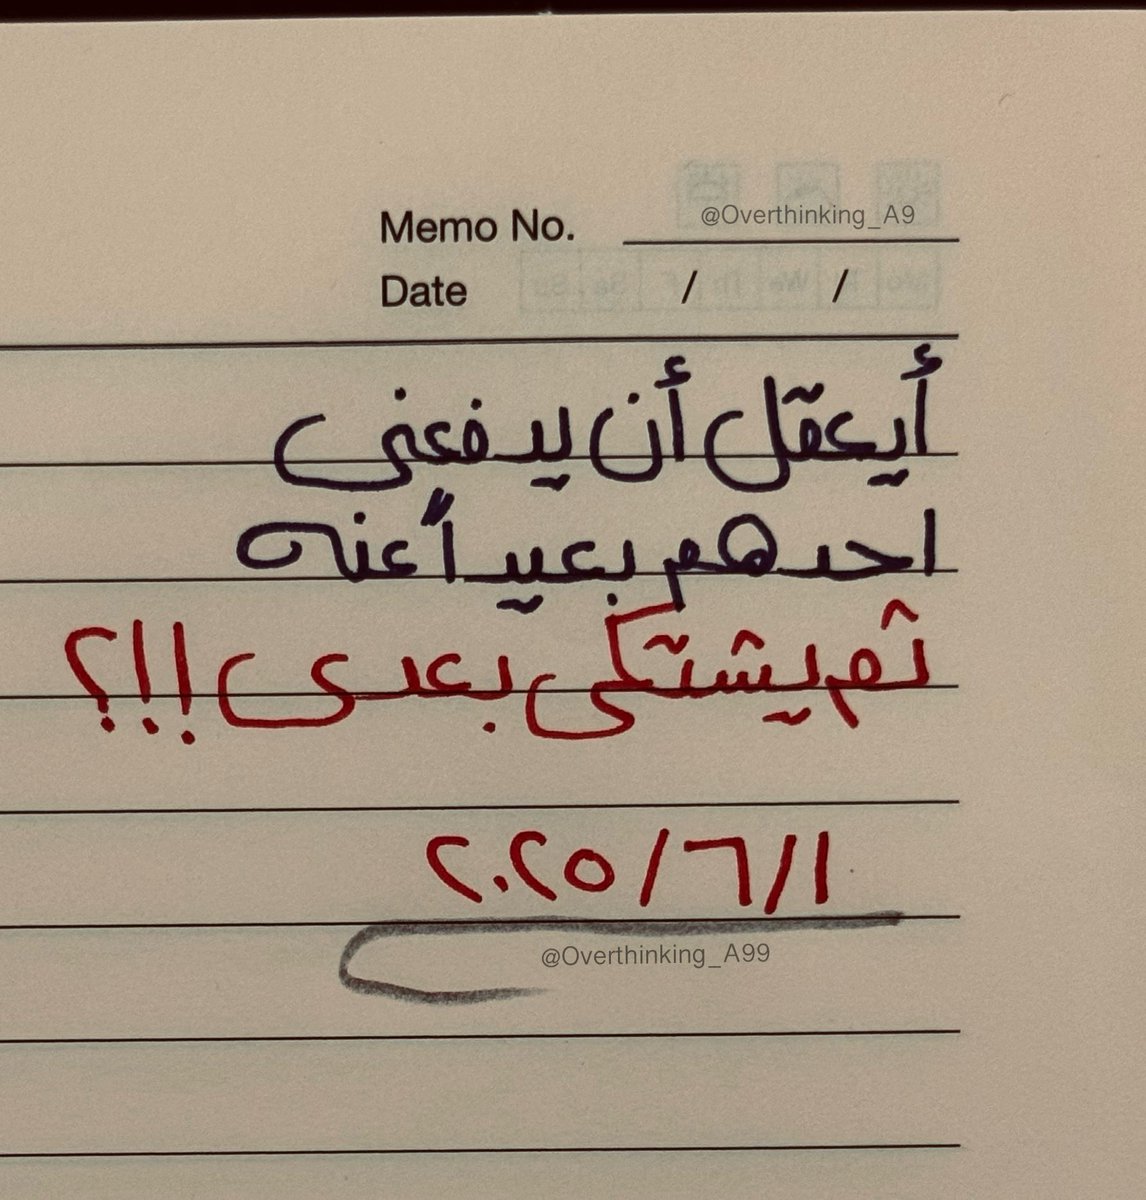 @Overthinking_A9
Memo No.
Date / /
أيعقل أن يدفعنى
احدهم بعيداً عنه
ثم يشتكى بعدى !!؟
٢٠٢٥/٦/١
@Overthinking_A99